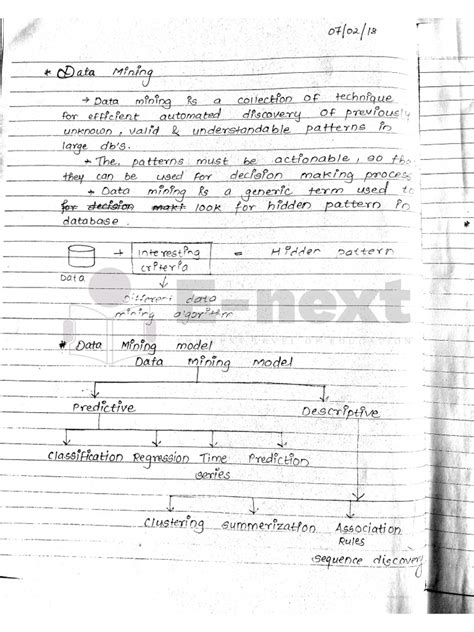 07/02/18
* Data Mining
→ Data mining is a collection of technique
for efficient automated discovery of previously
unknown, valid & understandable patterns in
large db's.
→ The, patterns must be actionable, so tha
they can be used for decision making process
→ Data mining is a generic term used to
for decision maki look for hidden pattern in
database.
+ Interesting = Hidden pattern
criteria
Data
Different data
mining algorithm
E-next
* Data Mining model
Data Mining model
Predictive Descriptive
Classification Regression Time Prediction
series
Clustering Summerization Association
Rules
Sequence discovery